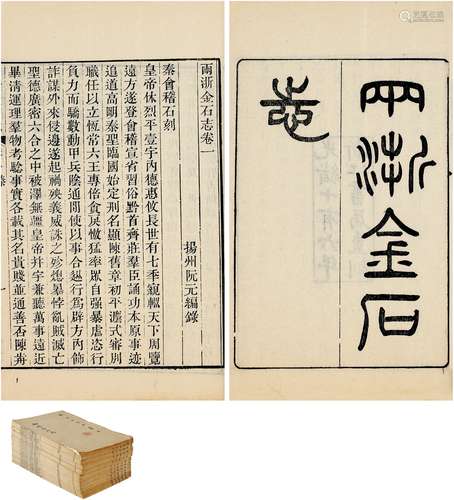 兩浙金石
志
兩浙金石志卷一
揚州阮元編錄
秦會稽石刻
皇帝休烈平壹宇内德惠攸長世有七季窺輼天下周覽
遠方遂登會稽宣省習俗黔首齊莊羣臣誦功本原事迹
追道高剛秦聖臨國始定刑名顯陳舊章初平灋式審別
職任以立恆常六王專倍貪戾慠猛率眾自強暴虐恣行
負力而驕數動甲兵陰通間使以事合從行爲辟方内飾
詐謀外來侵邊遂起禍殃義威誅之殄熄暴悖亂賊滅亡
聖德廣密六合之中被澤無彊皇帝并宇兼聽萬事遠近
畢清運理羣物考驗事實各載其名貴賤並通善否陳前